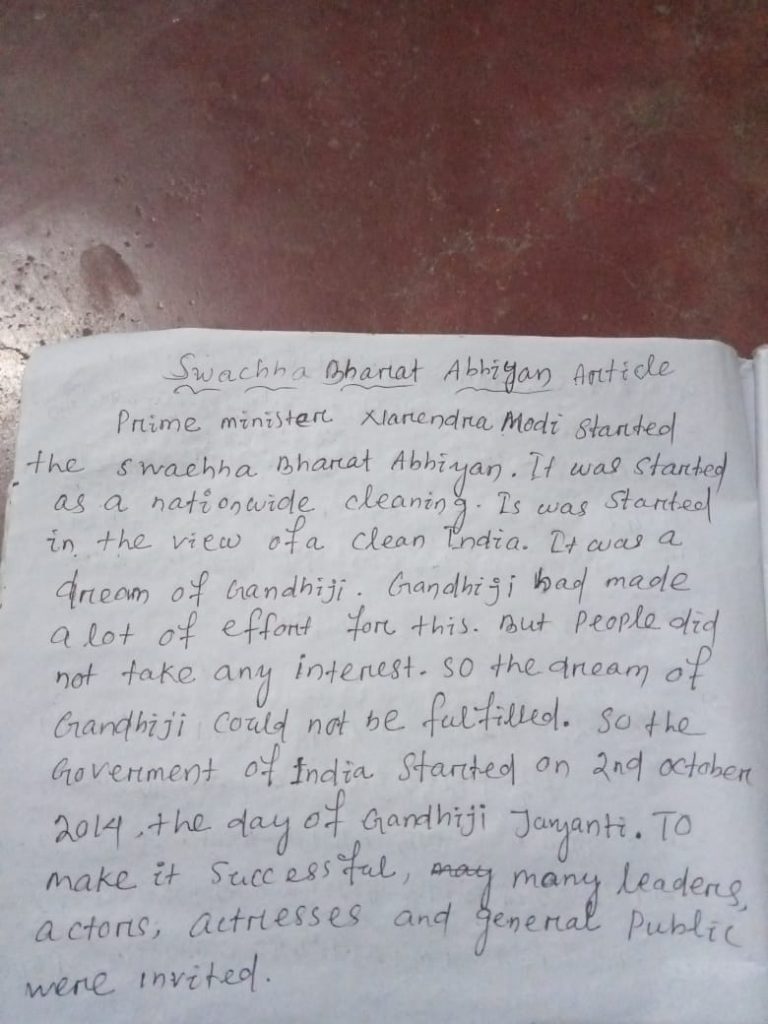 Swachha Bharat Abhiyan Article
Prime minister Narendra Modi started
the swachha Bharat Abhiyan. It was started
as a nationwide cleaning. Is was started
in the view of a clean India. It was a
dream of Gandhiji. Gandhiji had made
a lot of effort for this. But people did
not take any interest. so the dream of
Gandhiji could not be fulfilled. so the
Goverment of India started on 2nd october
2014, the day of Gandhiji Jayanti. To
make it successful, may many leaders,
actors, actresses and general public
were invited.